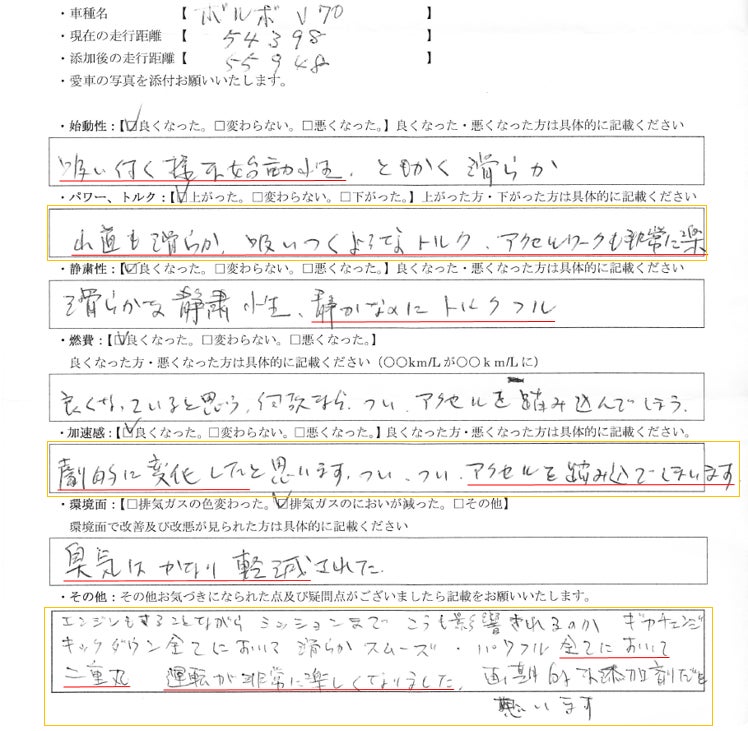 ・車種名 【 ボルボ V70 】
・現在の走行距離 【 54398 】
・添加後の走行距離【 55948 】
・愛車の写真を添付お願いいたします。
・始動性：【☑良くなった。□変わらない。□悪くなった。】良くなった・悪くなった方は具体的に記載ください
吸い付く様な始動性、ともかく滑らか
・パワー、トルク：【☑上がった。□変わらない。□下がった。】上がった方・下がった方は具体的に記載ください
出直も滑らか、吸いつくようなトルク、アクセルワークも非常に楽
・静粛性：【☑良くなった。□変わらない。□悪くなった。】良くなった・悪くなった方は具体的に記載ください
滑らかな静粛性、静かなのにトルクフル
・燃費：【☑良くなった。□変わらない。□悪くなった。】
良くなった方・悪くなった方は具体的に記載ください（○○km/Lが○○ｋm/Lに）
良くなっていると思う、何故なら、つい、アクセルを踏み込んでしまう。
・加速感：【☑良くなった。□変わらない。□悪くなった。】良くなった方・悪くなった方は具体的に記載ください。
劇的に変化したと思います、つい、つい、アクセルを踏み込でしまいます
・環境面：【□排気ガスの色変わった。☑排気ガスのにおいが減った。□その他】
環境面で改善及び改悪が見られた方は具体的に記載ください
臭気はかなり軽減された。
・その他：その他お気づきになられた点及び疑問点がございましたら記載をお願いいたします。
エンジンもさることながらミッションまでこうも影響されるのか ギカチェンジ
キックダウン全てにおいて滑らかスムーズ・パワフル全てにおいて
二重丸 運転が非常に楽しくなりました。画期的な添加剤だと
思います